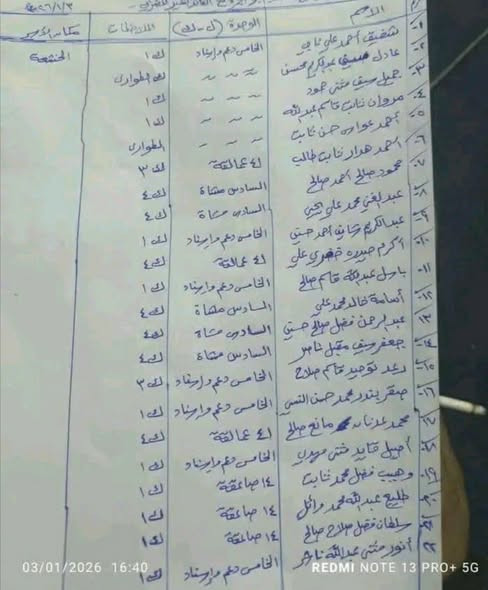 ٢٠٢٦/١/٣
م الاسم الوحدة (ل-ك) الملاحظات مكان الأسر
١- شفيق أحمد علي الخامس دعم وإسناد ك ١ الخشعة
٢- عادل عبدالكريم محسن ~ ~ ~ ك الطوارئ
٣- جميل سيف مثنى ~ ~ ~ ك ١
٤- مروان ثابت قاسم عبدالله ~ ~ ~ ك ١
٥- أحمد عواس حسن ثابت ~ ~ ~ الطوارئ
٦- أحمد هدار ثابت طالب ٤ عمالقة ك ٣
٧- محمود صالح أحمد صالح السادس مشاة ك ٤
٨- عبدالغني محمد علي السادس مشاة ك ٤
٩- عبدالكريم أحمد حسن الخامس دعم وإسناد ك ١
١٠- أكرم علي ٤ عمالقة ك ٤
١١- باسل عبدالله قاسم صالح الخامس دعم وإسناد ك ١
١٢- أسامة خالد محمد علي السادس مشاة ك ٤
١٣- عبدالرحمن فضل صالح حسين السادس مشاة ك ٤
١٤- جعفر سيف مقبل ناصر السادس مشاة ك ٤
١٥- توحيد قاسم صلاح الخامس دعم وإسناد ك ٣
١٦- صقر بندر محمد حسن الخامس دعم وإسناد ك ١
١٧- محمد عدنان مانع صالح ٤ عمالقة ك ٤
١٨- أصيل قايد مثنى مهدي الخامس دعم وإسناد ك ١
١٩- وهيب فضل محمد ثابت ١٤ صاعقة ك ١
٢٠- عبدالله محمد وائل ١٤ صاعقة ك ١
٢١- سلطان فضل صلاح صالح ١٤ صاعقة ك ١
٢٢- أنور مثنى عبدالله ناصر الخامس دعم وإسناد ك ١
03/01/2026 16:40 REDMI NOTE 13 PRO+ 5G